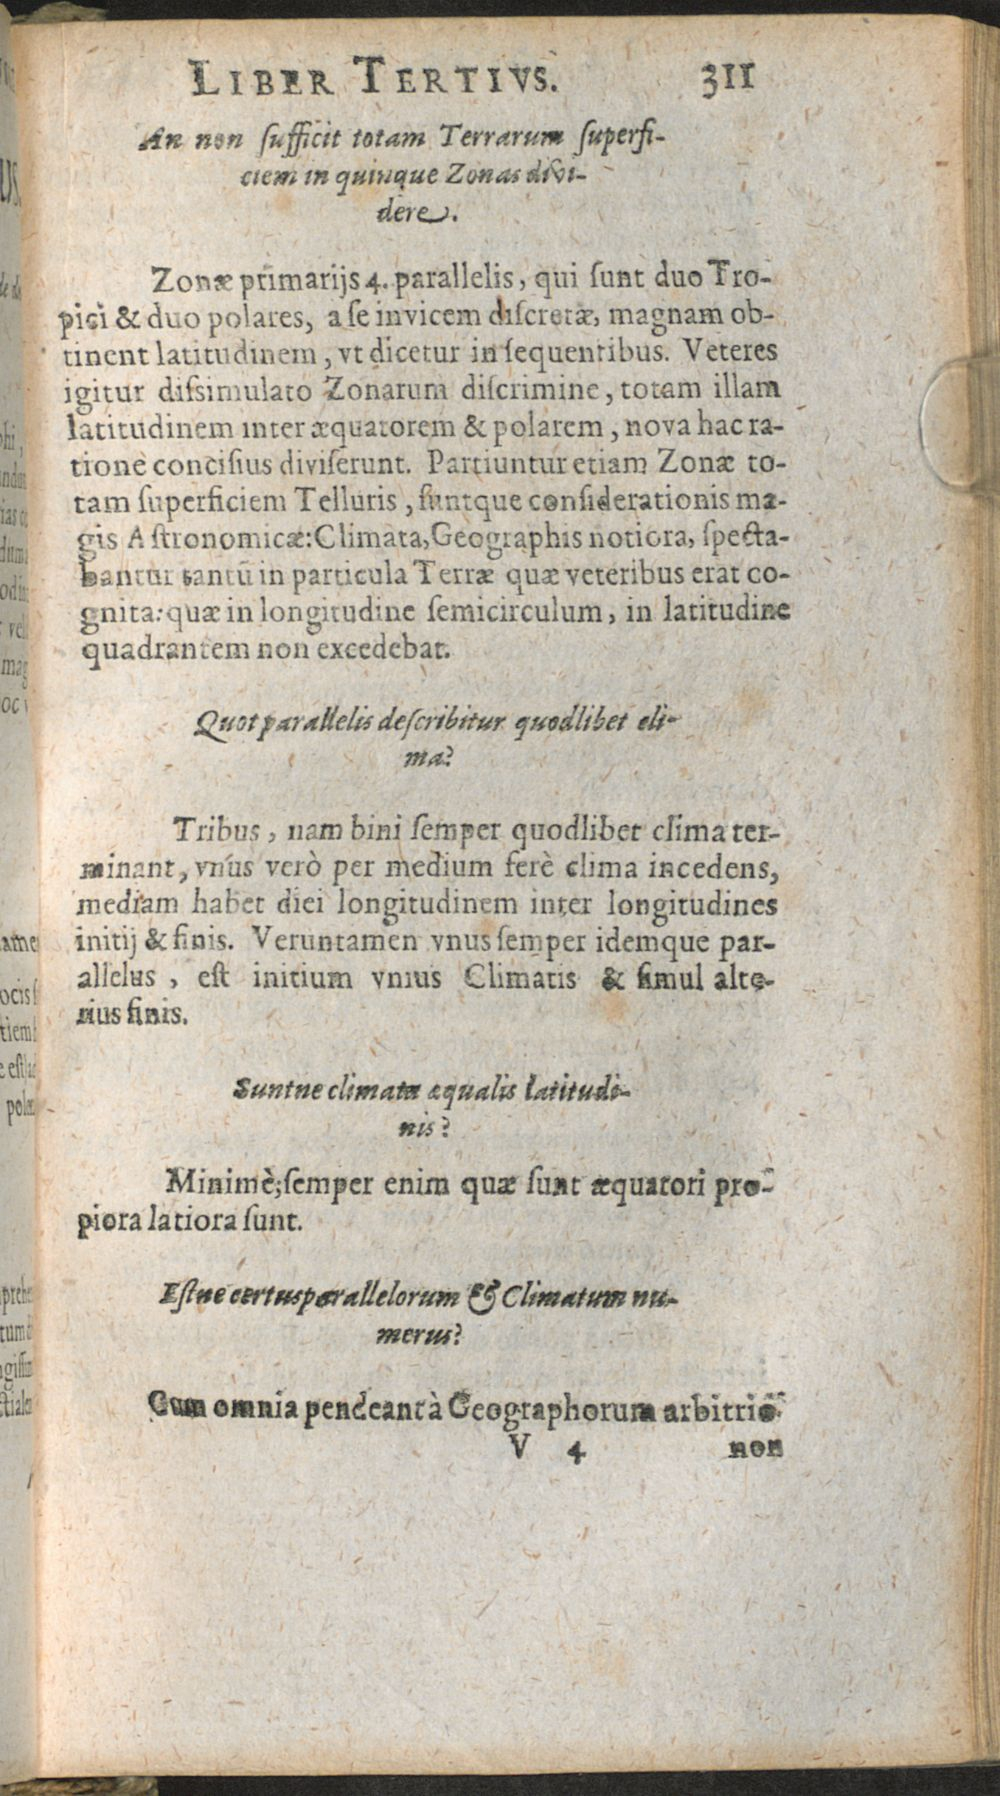 LIBER TERTIVS. 311
An non ſufficit totam Terrarum ſuperfi-
ciem in quinque Zonas divi-
dere.
Zonæ primarijs 4. parallelis, qui ſunt duo Tro-
pici & duo polares, a ſe invicem diſcretæ, magnam ob-
tinent latitudinem, vt dicetur in ſequentibus. Veteres
igitur diſsimulato Zonarum diſcrimine, totam illam
latitudinem inter æquatorem & polarem, nova hac ra-
tione conciſius diviſerunt. Partiuntur etiam Zonæ to-
tam ſuperficiem Telluris, ſuntque conſiderationis ma-
gis Aſtronomicæ: Climata, Geographis notiora, ſpecta-
bantur tantū in particula Terræ quæ veteribus erat co-
gnita: quæ in longitudine ſemicirculum, in latitudine
quadrantem non excedebat.
Quot parallelis deſcribitur quodlibet cli-
ma?
Tribus, nam bini ſemper quodlibet clima ter-
minant, vnus verò per medium ferè clima incedens,
mediam habet diei longitudinem inter longitudines
initij & finis. Veruntamen vnus ſemper idemque par-
allelus, eſt initium vnius Climatis & ſimul alte-
rius finis.
Suntne climata æqualis latitudi-
nis?
Minimè; ſemper enim quæ ſunt æquatori pro-
piora latiora ſunt.
Eſtne certus parallelorum & Climatum nu-
merus?
Cum omnia pendeant à Geographorum arbitrio
V 4 non